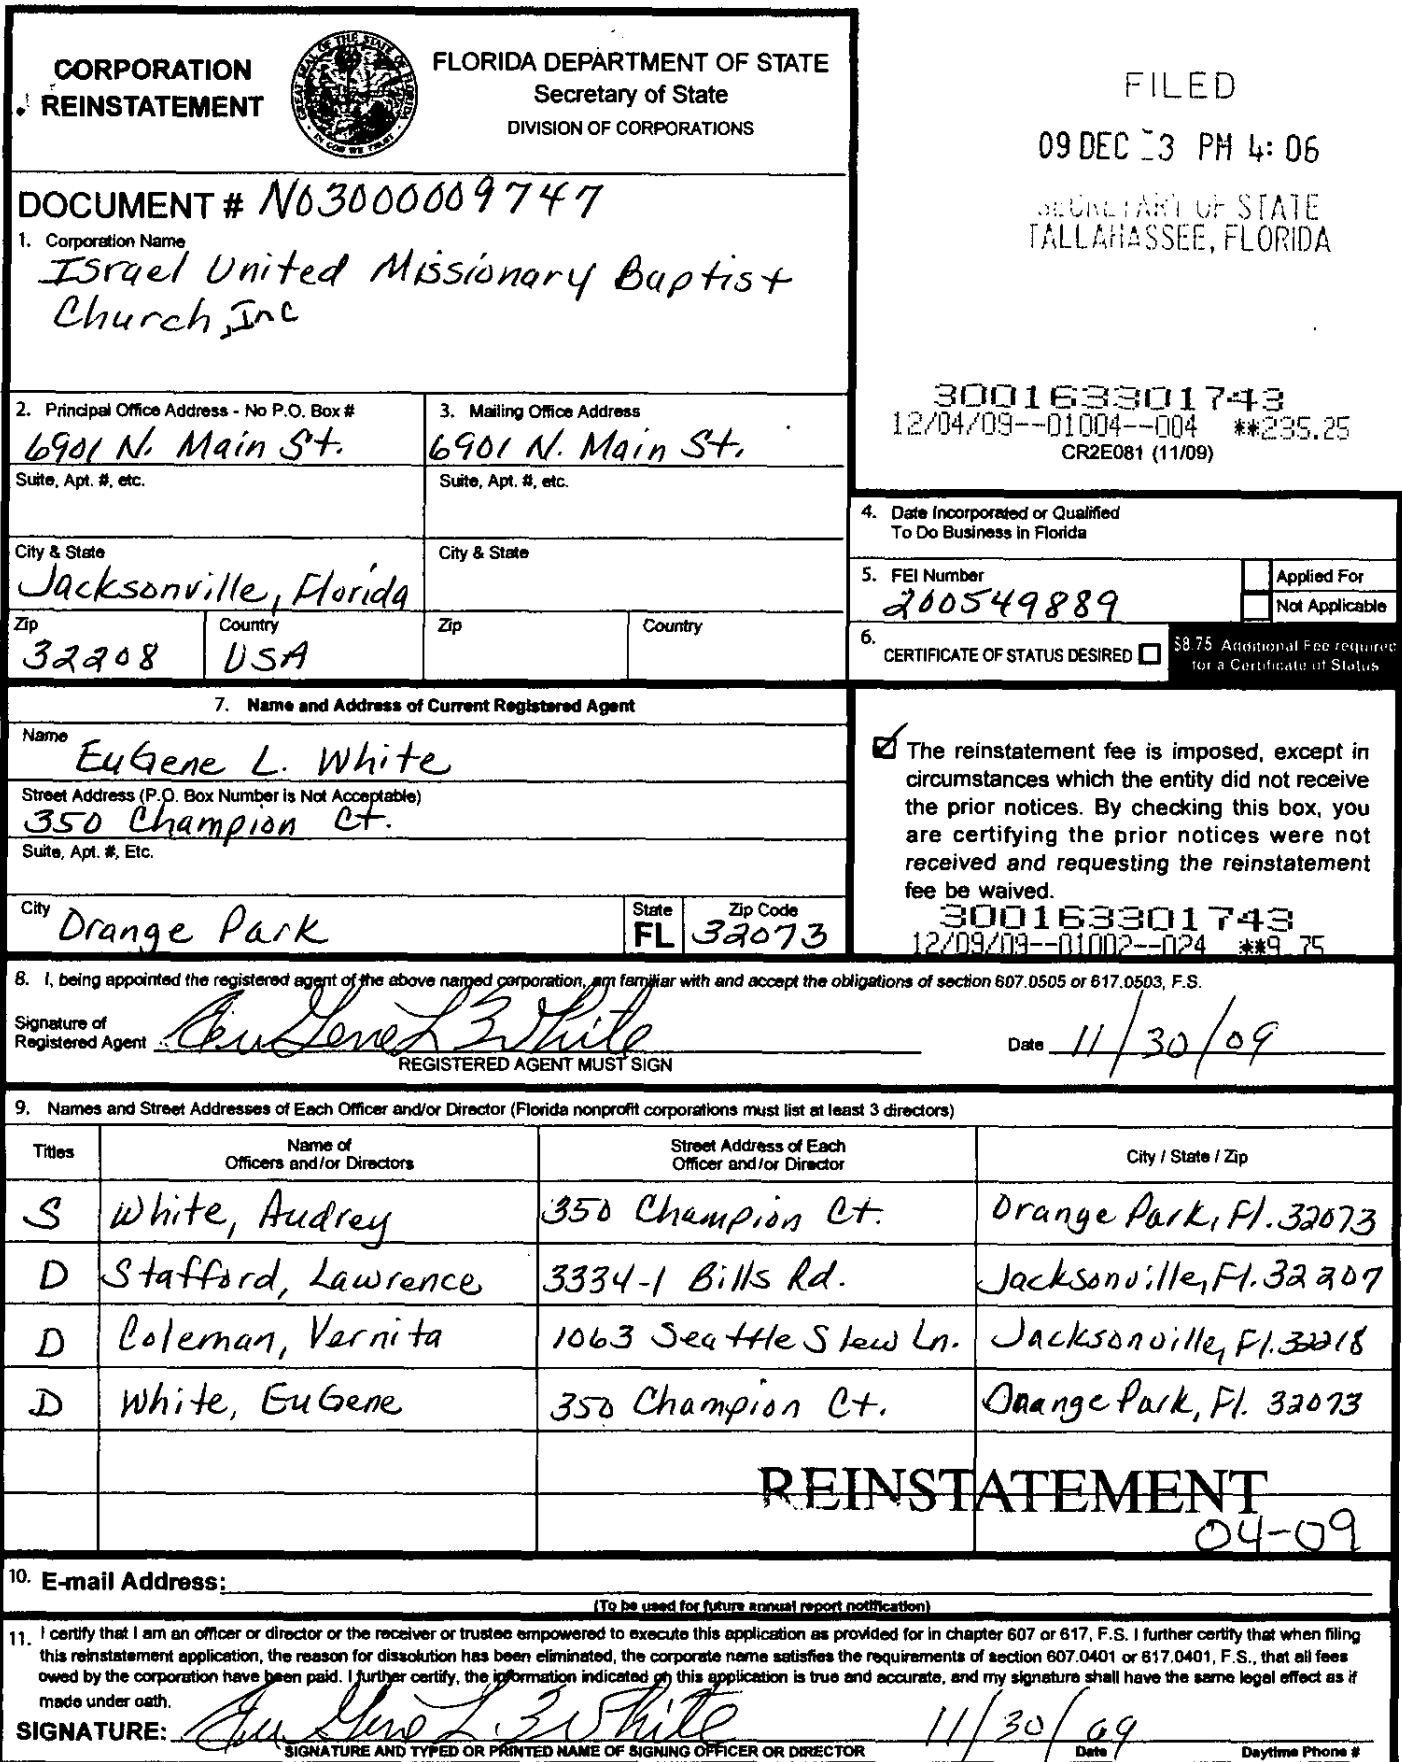 CORPORATION
REINSTATEMENT
GREAT SEAL OF THE STATE OF FLORIDA
IN GOD WE TRUST
FLORIDA DEPARTMENT OF STATE
Secretary of State
DIVISION OF CORPORATIONS
FILED
09 DEC 3 PM 4:06
SECRETARY OF STATE
TALLAHASSEE, FLORIDA
DOCUMENT # N03000009747
1. Corporation Name
Israel United Missionary Baptist
Church, Inc
300163301743
12/04/09--01004--004 **235.25
CR2E081 (11/09)
2. Principal Office Address - No P.O. Box #
6901 N. Main St.
3. Mailing Office Address
6901 N. Main St.
Suite, Apt. #, etc.
Suite, Apt. #, etc.
City & State
Jacksonville, Florida
City & State
Zip
32208
Country
USA
Zip
Country
4. Date Incorporated or Qualified
To Do Business in Florida
5. FEI Number
200549889
Applied For
Not Applicable
6. CERTIFICATE OF STATUS DESIRED
$8.75 Additional Fee required
for a Certificate of Status
7. Name and Address of Current Registered Agent
Name
EuGene L. White
Street Address (P.O. Box Number is Not Acceptable)
350 Champion Ct.
Suite, Apt. #, Etc.
City
Orange Park
State
FL
Zip Code
32073
The reinstatement fee is imposed, except in
circumstances which the entity did not receive
the prior notices. By checking this box, you
are certifying the prior notices were not
received and requesting the reinstatement
fee be waived.
300163301743
12/09/09--01002--024 **9.75
8. I, being appointed the registered agent of the above named corporation, am familiar with and accept the obligations of section 607.0505 or 617.0503, F.S.
Signature of
Registered Agent EuGene L White
Date 11/30/09
REGISTERED AGENT MUST SIGN
9. Names and Street Addresses of Each Officer and/or Director (Florida nonprofit corporations must list at least 3 directors)
Titles
Name of
Officers and/or Directors
Street Address of Each
Officer and/or Director
City / State / Zip
S White, Audrey 350 Champion Ct. Orange Park, Fl. 32073
D Stafford, Lawrence 3334-1 Bills Rd. Jacksonville, Fl. 32207
D Coleman, Vernita 1063 Seattle Slew Ln. Jacksonville, Fl. 32218
D White, EuGene 350 Champion Ct. Orange Park, Fl. 32073
REINSTATEMENT
04-09
10. E-mail Address:
(To be used for future annual report notification)
11. I certify that I am an officer or director or the receiver or trustee empowered to execute this application as provided for in chapter 607 or 617, F.S. I further certify that when filing
this reinstatement application, the reason for dissolution has been eliminated, the corporate name satisfies the requirements of section 607.0401 or 617.0401, F.S., that all fees
owed by the corporation have been paid. I further certify, the information indicated on this application is true and accurate, and my signature shall have the same legal effect as if
made under oath.
SIGNATURE: EuGene L. White 11/30/09
SIGNATURE AND TYPED OR PRINTED NAME OF SIGNING OFFICER OR DIRECTOR
Date
Daytime Phone #